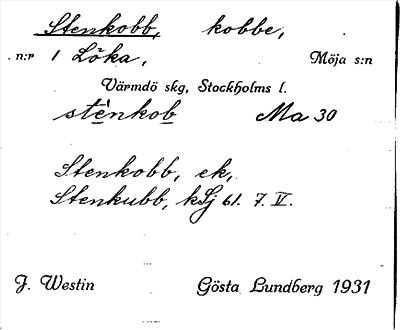 Stenkobb, kobbe,
n:r 1 Löka, Möja s:n
Värmdö skg, Stockholms l.
stènkob Ma 30
Stenkobb, ek,
Stenkubb, kSj 61. 7. V.
J. Westin Gösta Lundberg 1931